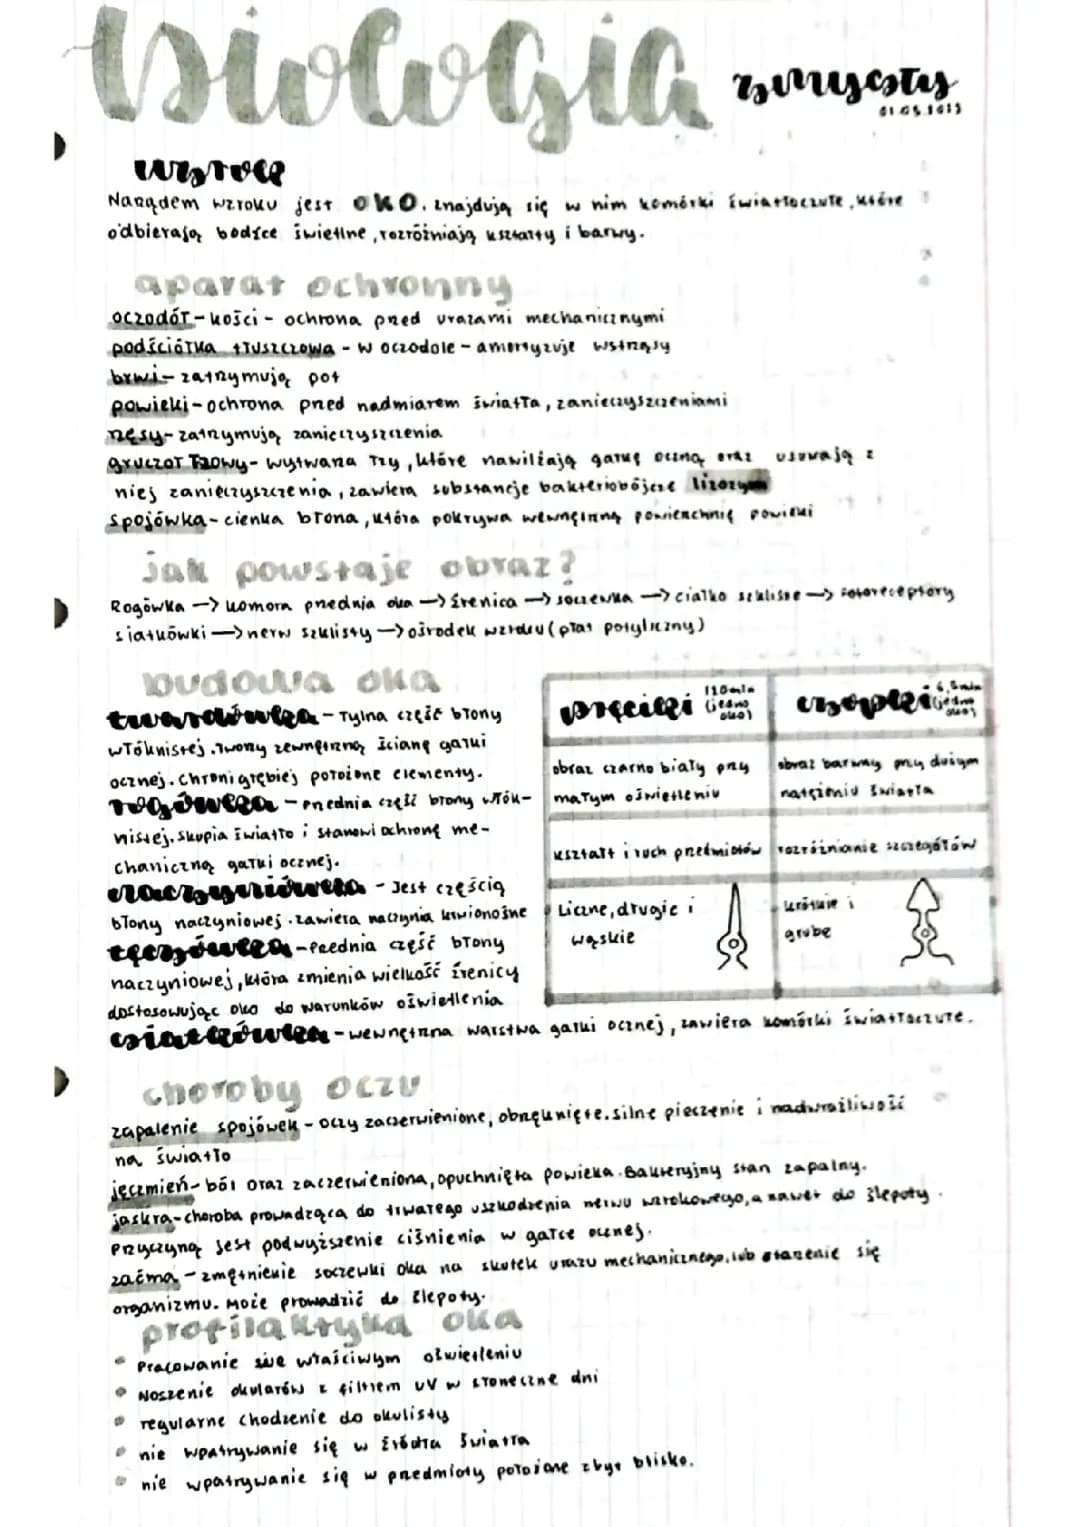 biologia zmysły
01.05.2023
wzrok
Narządem wzroku jest OKO. znajdują się w nim komórki światłoczułe, które
odbierają bodźce świetlne, rozróżniają kształty i barwy.
aparat ochronny
oczodół - kości - ochrona przed urazami mechanicznymi
podściółka tłuszczowa - w oczodole - amortyzuje wstrząsy
brwi - zatrzymują pot
powieki - ochrona przed nadmiarem światła, zanieczyszczeniami
rzęsy - zatrzymują zanieczyszczenia
gruczoł łzowy - wytwarza łzy, które nawilżają gałkę oczną oraz usuwają z
niej zanieczyszczenia, zawiera substancje bakteriobójcze lizozym
spojówka - cienka błona, która pokrywa wewnętrzną powierzchnię powieki
jak powstaje obraz?
Rogówka → komora przednia oka → źrenica → soczewka → ciałko szkliste → fotoreceptory
siatkówki → nerw szklisty → ośrodek wzroku (płat potyliczny)
budowa oka
twardówka - Tylna część błony
włóknistej. Tworzy zewnętrzną ścianę gałki
ocznej. Chroni głębiej położone elementy.
rogówka - przednia część błony włók-
nistej. Skupia światło i stanowi ochronę me-
chaniczną gałki ocznej.
naczyniówka - Jest częścią
błony naczyniowej. zawiera naczynia krwionośne
tęczówka - Przednia część błony
naczyniowej, która zmienia wielkość źrenicy
dostosowując oko do warunków oświetlenia
siatkówka - wewnętrzna warstwa gałki ocznej, zawiera komórki światłoczułe.
pręciki 120mln (jedno oko) czopki 6,5mln (jedno oko)
obraz czarno biały przy małym oświetleniu
obraz barwny przy dużym natężeniu światła
kształt i ruch przedmiotów rozróżnianie szczegółów
Liczne, długie i wąskie
krótkie i grube
choroby oczu
zapalenie spojówek - oczy zaczerwienione, obrzęknięte. silne pieczenie i nadwrażliwość
na światło
jęczmień - ból oraz zaczerwieniona, opuchnięta powieka. Bakteryjny stan zapalny.
jaskra - choroba prowadząca do trwałego uszkodzenia nerwu wzrokowego, a nawet do ślepoty.
Przyczyną jest podwyższenie ciśnienia w gałce ocznej.
zaćma - zmętnienie soczewki oka na skutek urazu mechanicznego, lub starzenie się
organizmu. Może prowadzić do ślepoty.
profilaktyka oka
• Pracowanie we właściwym oświetleniu
• Noszenie okularów z filtrem UV w słoneczne dni
• regularne chodzenie do okulisty
• nie wpatrywanie się w źródła światła
• nie wpatrywanie się w przedmioty położone zbyt blisko.